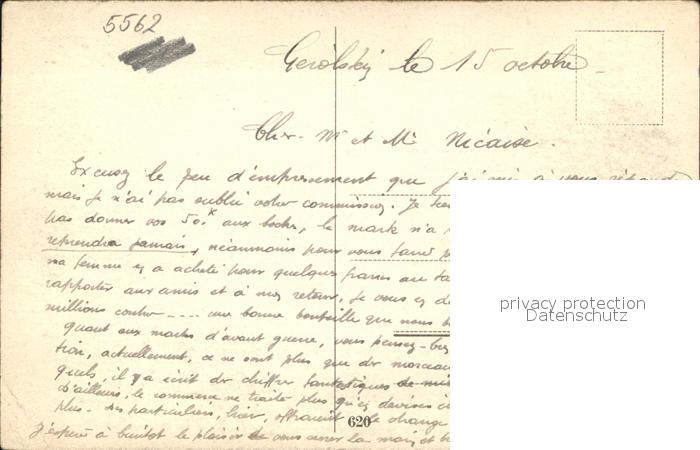 5562
Gerolstein le 15 octobre
Cher Mr et Me Nicaise.
Excusez le peu d'empressement que j'ai mis à vous répondre
mais je n'ai pas oublié votre commission. Je
pas donner vos 50 aux boches, le mark n'a
reprendra jamais, néanmoins pour vous faire
ma femme en a acheté pour quelques francs au
rapporter aux amis et à mon retour, je vous en
millions contre .... une bonne bouteille que nous
quant aux marks d'avant guerre, vous pensez
actuellement, ce ne sont plus que des morceaux
quels, il y a écrit des chiffres fantastiques
D'ailleurs, le commerce ne traite plus qu'en devises
plus. Des particuliers, hier, offraient le change
J'espère à bientôt le plaisir de vous serrer la main et
620
privacy protection
Datenschutz